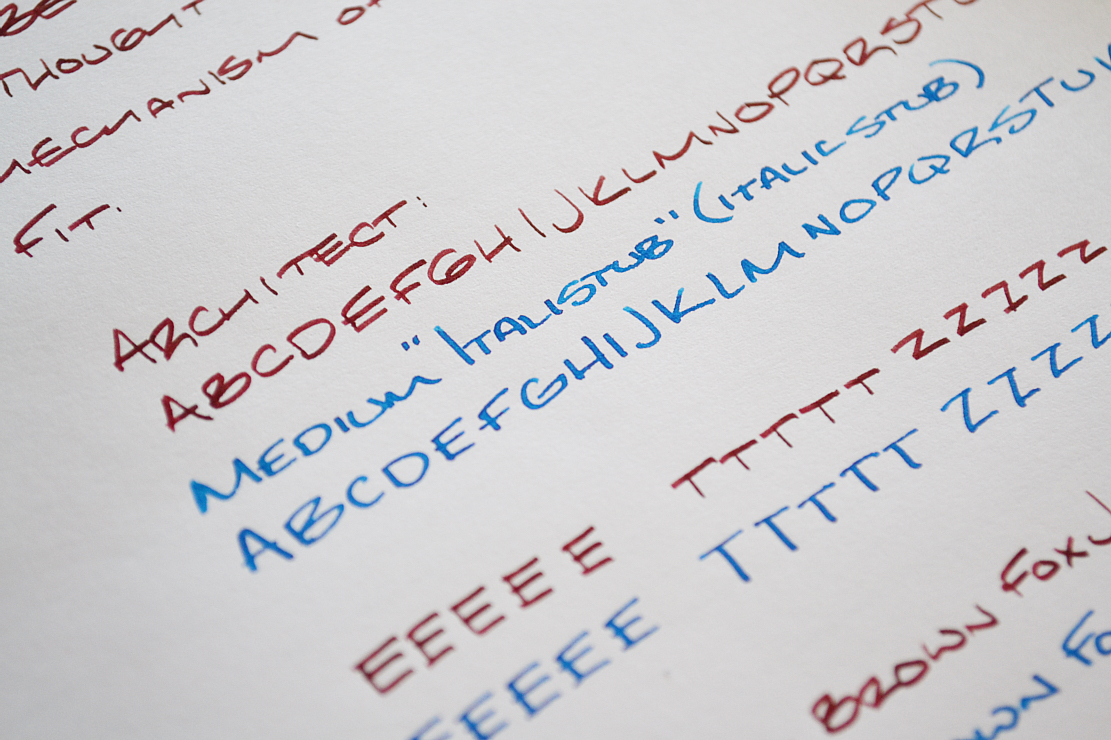 BE
THOUGHT
MECHANISM OF
FIT.
ARCHITECT:
ABCDEFGHIJKLMNOPQRSTU
MEDIUM "ITALISTUB" (ITALIC-STUB)
ABCDEFGHIJKLMNOPQRSTUV
TTTTT ZZZZZ
TTTTT ZZZZ
EEEEE
EEEEE
BROWN FOX J
OWN FO